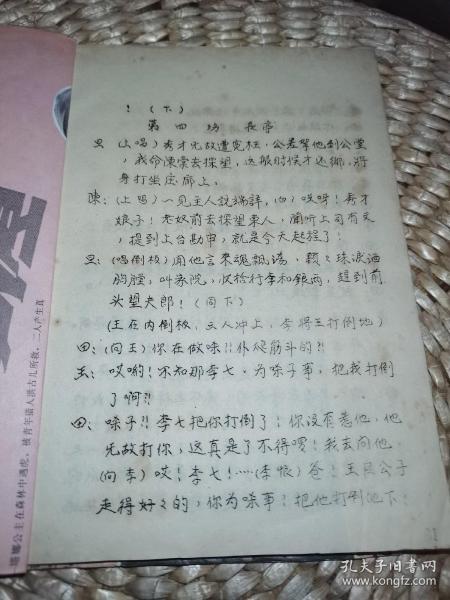 ！（下）
第四场 长亭
旦 （上唱）秀才无故遭冤枉，公差牵他到公堂
，我命陈荣去探望，这般时候才还乡，将
身打坐左廊上。
陈：（上唱）一见主人说端详，（白）哎呀！秀才
娘子！老奴前去探望东人，闻听上司有文
，提到上台勘审，就是今天起程了！
旦：（唱倒板）闻他言来魂飘荡，颗々珠泪洒
胸膛，叫家院，収拾行李和银两，赶到前
头望夫郎！（同下）
（王在内倒板，三人冲上，李将王打倒地）
田：（向王）你在做啥!!
王：哎哟！不知那李七，为啥子事，把我打倒
了啊?!
田：啥子!! 李七把你打倒了！你没有惹他，他
无故打你，这真是了不得啰！我去问他
（向李）哎！李七！……（李恨）爸！王良公子
走得好々的，你为啥事！把他打倒地下：
塔娜公主在森林中遇虎，被青年猎人洪古儿所救，二人产生真
孔夫子旧书网
www.kongfz.com